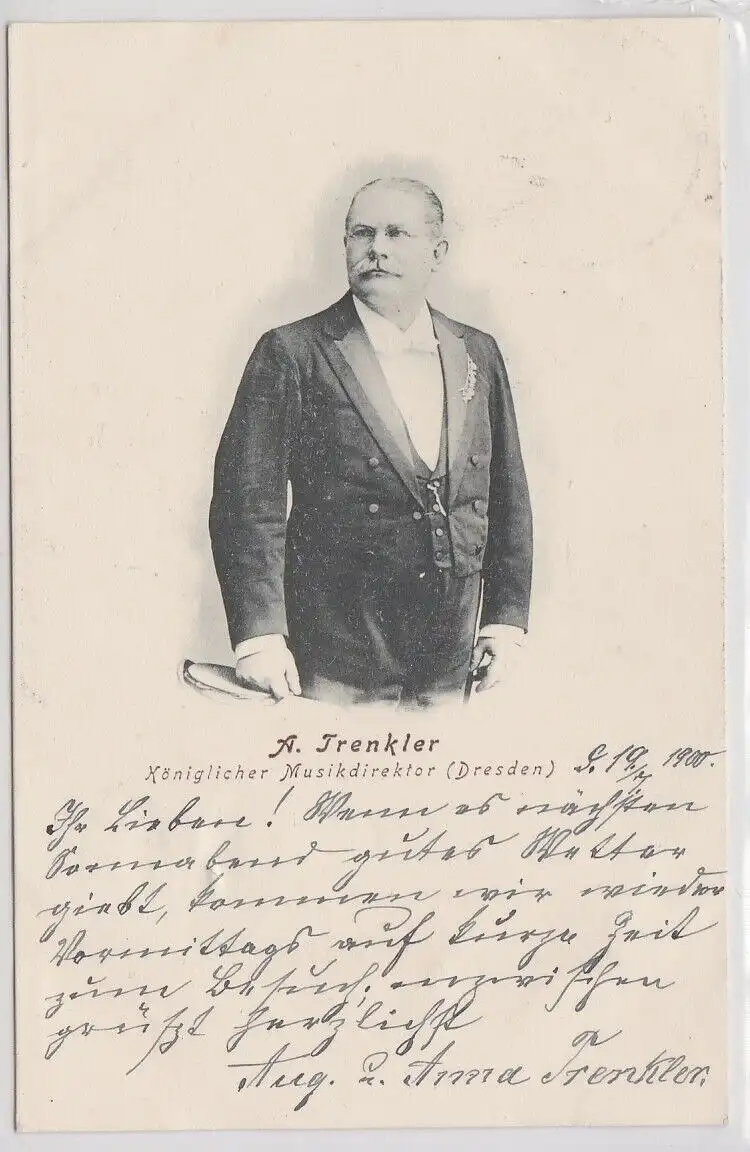 A. Trenkler
Königlicher Musikdirektor (Dresden)
19/7 1900.
Ihr Lieben! Wenn es nächsten
Sonnabend gutes Wetter
giebt, kommen wir wieder
Vormittags auf kurze Zeit
zum Besuch; inzwischen
grüßt herzlichst
Aug. u. Anna Trenkler.